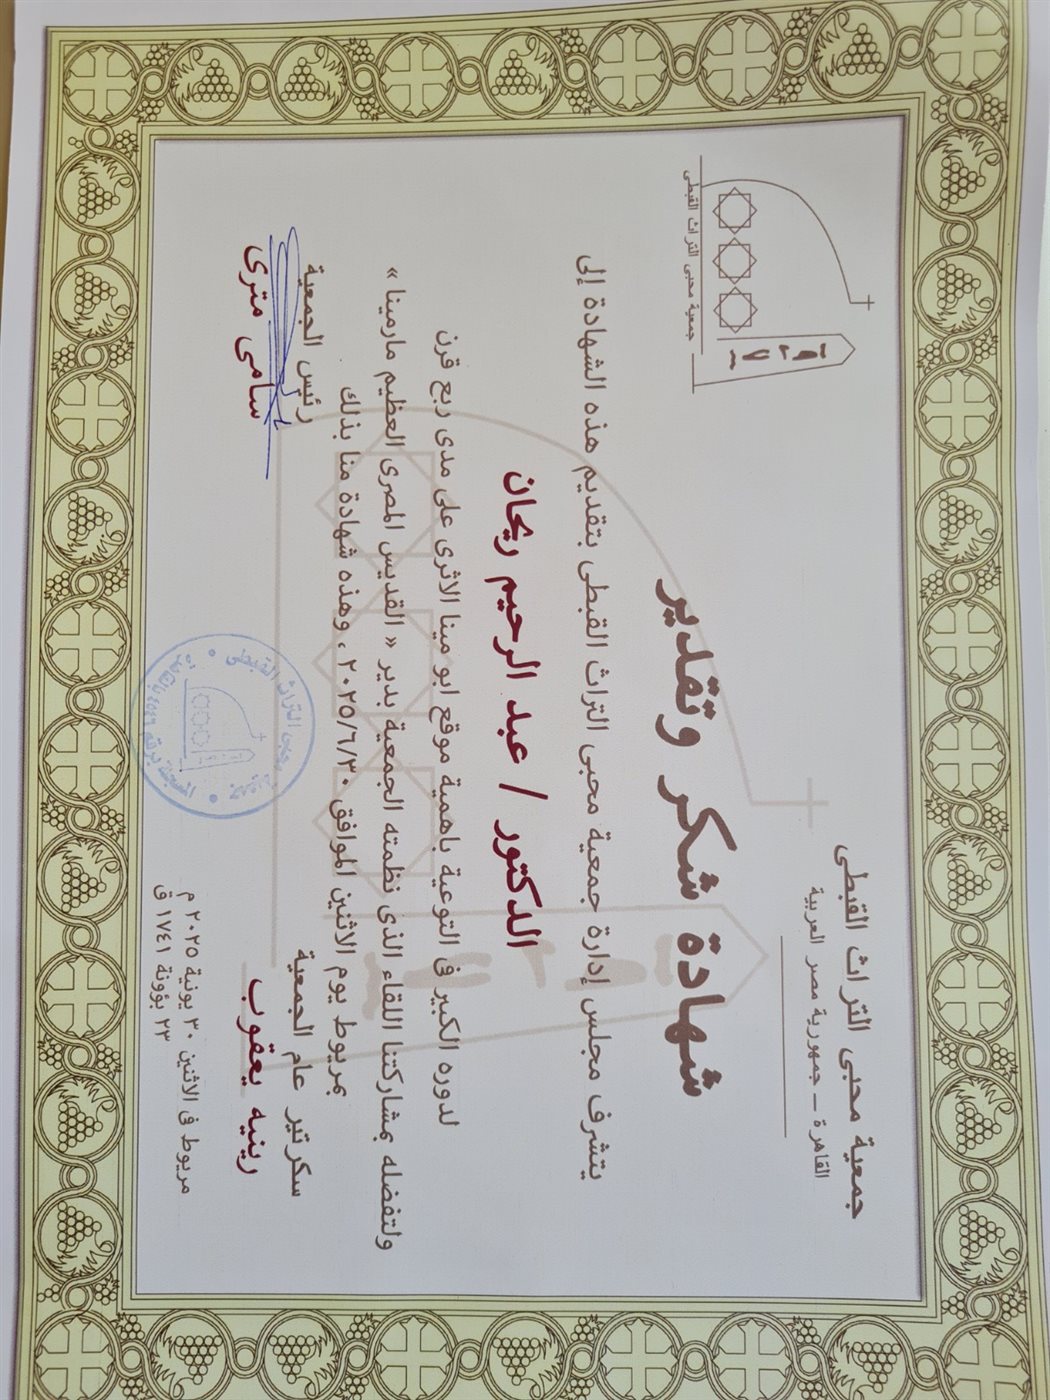 جمعية محبى التراث القبطى
القاهرة – جمهورية مصر العربية
جمعية محبى التراث القبطى
شهادة شكر وتقدير
يتشرف مجلس إدارة جمعية محبى التراث القبطى بتقديم هذه الشهادة إلى
الدكتور / عبد الرحيم ريحان
لدوره الكبير فى التوعية باهمية موقع ابو مينا الاثرى على مدى ربع قرن
ولتفضله بمشاركتنا اللقاء الذى نظمته الجمعية بدير « القديس المصرى العظيم مارمينا »
بمريوط يوم الاثنين الموافق ٢٠٢٥/٦/٣٠ ، وهذه شهادة منا بذلك
سكرتير عام الجمعية
رينيه يعقوب
رئيس الجمعية
سامى مترى
مريوط فى الاثنين ٣٠ يونية ٢٠٢٥ م
٢٣ بؤونة ١٧٤١ ق